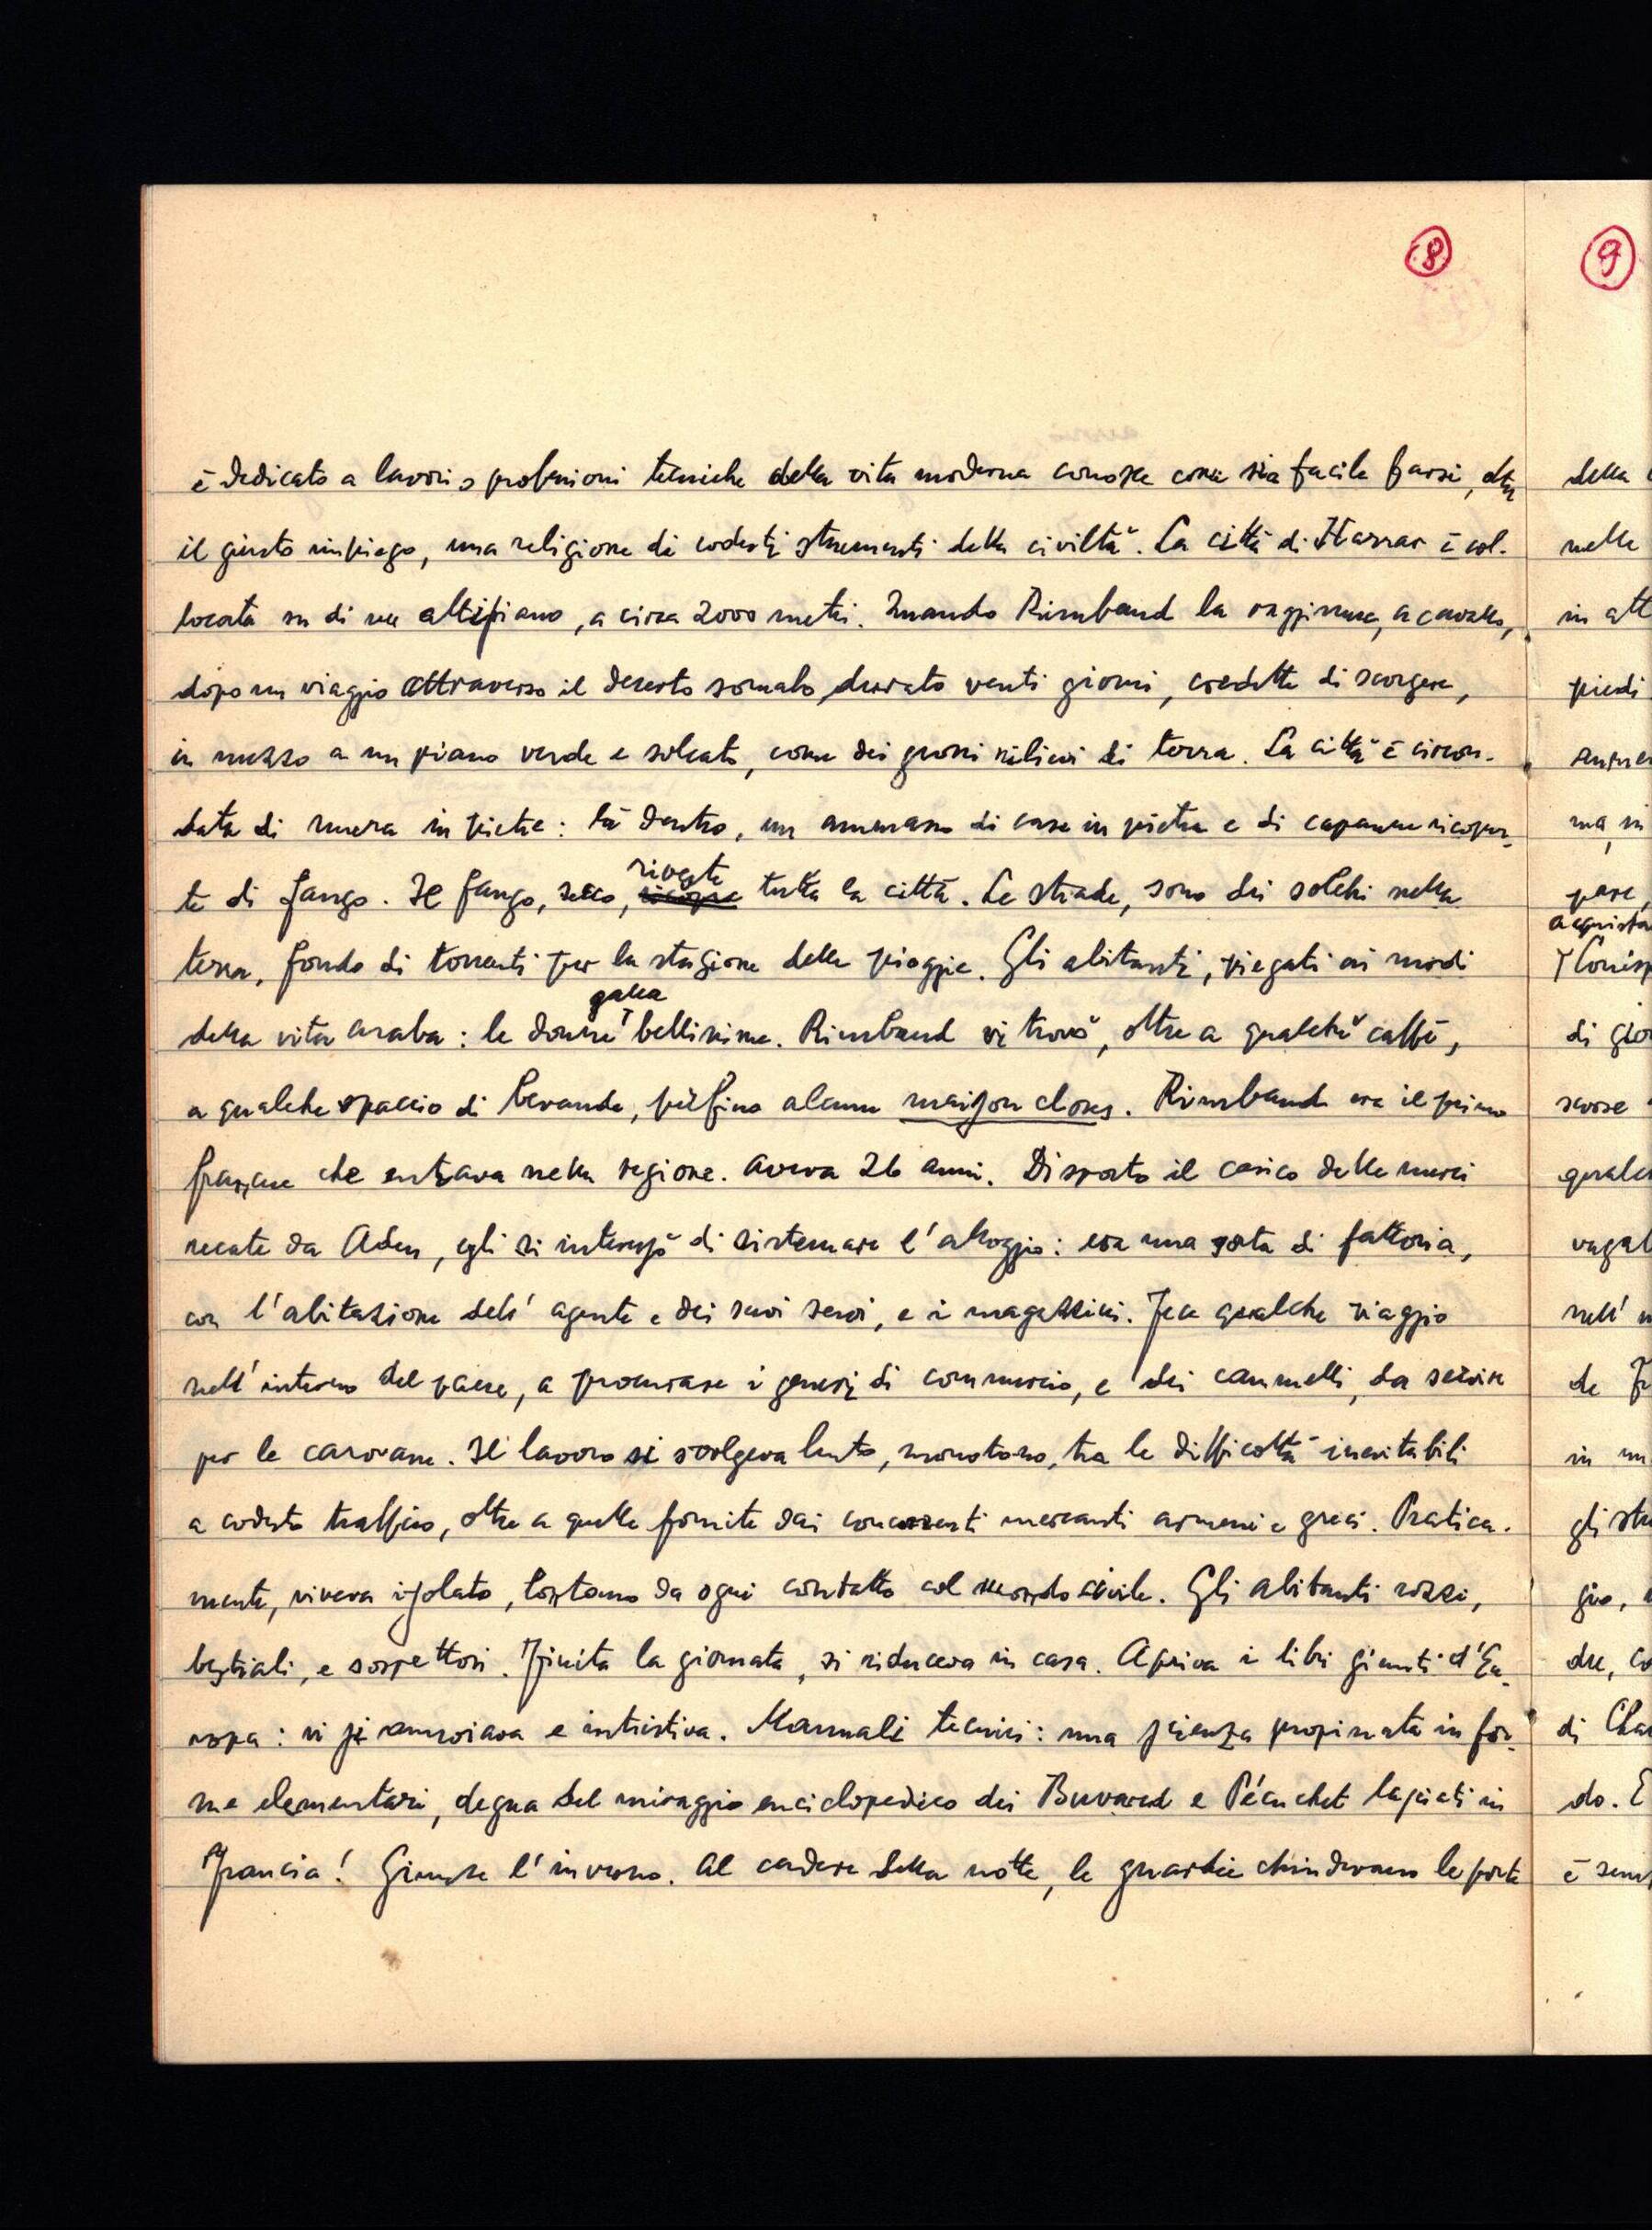 8
è dedicato a lavori o professioni tecniche della vita moderna conosce come sia facile farsi, dal
il giusto impiego, una religione di codesti strumenti della civiltà. La città di Harrar è col-
locata su di un altipiano, a circa 2000 metri. Quando Rimbaud la raggiunse, a cavallo,
dopo un viaggio attraverso il deserto somalo, durato venti giorni, credette di scorgere,
in mezzo a un piano verde e solcato, come dei grossi rilievi di terra. La città è circon-
data di mura in pietra: là dentro, un ammasso di case in pietra e di capanne ricoper-
te di fango. Il fango, secco, riveste tutta la città. Le strade, sono dei solchi nella
terra, fondo di torrenti per la stagione delle piogge. Gli abitanti, piegati ai modi
della vita araba: le donne galla bellissime. Rimbaud vi trovò, oltre a qualche caffè,
a qualche spaccio di bevande, perfino alcune maison closes. Rimbaud era il primo
francese che entrava nella regione. Aveva 26 anni. Disposto il carico delle merci
recate da Aden, egli si interessò di sistemare l'alloggio: era una sorta di fattoria,
con l'abitazione dell'agente e dei suoi servi, e i magazzini. Fece qualche viaggio
nell'interno del paese, a procurare i generi di commercio, e dei cammelli, da servire
per le carovane. Il lavoro si svolgeva lento, monotono, tra le difficoltà inevitabili
a codesto traffico, oltre a quelle fornite dai concorrenti mercanti armeni e greci. Pratica-
mente, viveva isolato, lontano da ogni contatto col mondo civile. Gli abitanti rozzi,
bestiali, e sospettosi. Finita la giornata, si riduceva in casa. Apriva i libri giunti d'Eu-
ropa: vi si annoiava e intristiva. Manuali tecnici: una scienza propinata in for-
me elementari, degna del miraggio enciclopedico dei Buvard e Pécuchet lasciati in
Francia! Giunse l'inverno. Al cadere della notte, le guardie chiudevano le porte
9
della
nelle
in
piedi
di
di
de
in
gli
di
do.
è